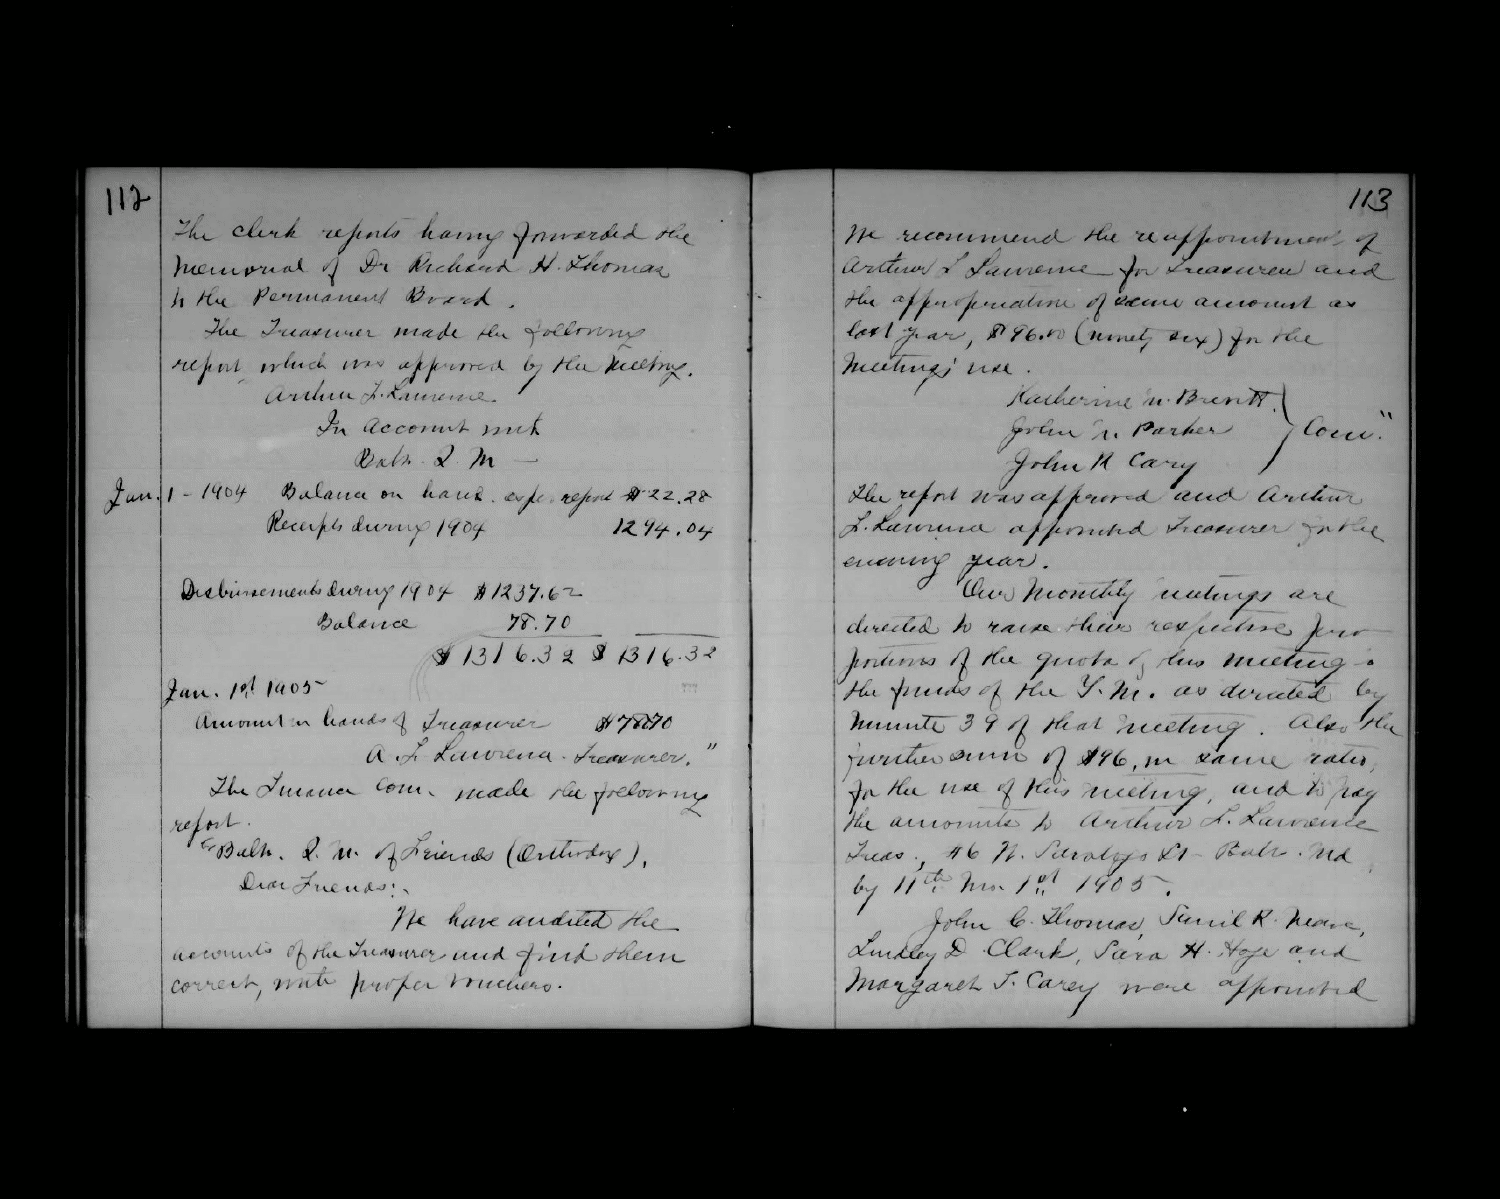 112
The clerk reports having forwarded the
Memorial of Dr Richard H. Thomas
to the Permanent Board.
The Treasurer made the following
report, which was approved by the Meeting.
Arthur L. Lawrence
In Account with
Balt. Q. M —
Jan. 1 - 1904 Balance on hand. as per report $22.28
Receipts during 1904 1294.04
Disbursements during 1904 $1237.62
Balance 78.70
$1316.32 $1316.32
Jan. 1st 1905
Amount in hands of Treasurer $78.70
A. L. Lawrence. Treasurer."
The Finance Com. made the following
report.
"Balt. Q. M. of Friends (Orthodox).
Dear Friends:-
We have audited the
accounts of the Treasurer and find them
correct, with proper vouchers.
113
We recommend the reappointment of
Arthur L Lawrence for Treasurer and
the appropriation of same amount as
last year, $96.00 (ninety six) for the
Meetings' use.
Katherine M. Brevitt
John N. Parker } Com."
John R Cary
The report was approved and Arthur
L. Lawrence appointed Treasurer for the
ensuing year.
Our Monthly meetings are
directed to raise their respective pro-
portions of the quota of this meeting to
the funds of the Y. M. as directed by
Minute 39 of that meeting. Also the
further sum of $96, in same ratio,
for the use of this meeting, and to pay
the amounts to Arthur L. Lawrence
Treas., #6 W. Saratoga St - Balt. Md
by 11th Mo. 1st 1905.
John C. Thomas, Saml R. Neave,
Lindley D Clark, Sara H. Hoge and
Margaret T. Carey were appointed